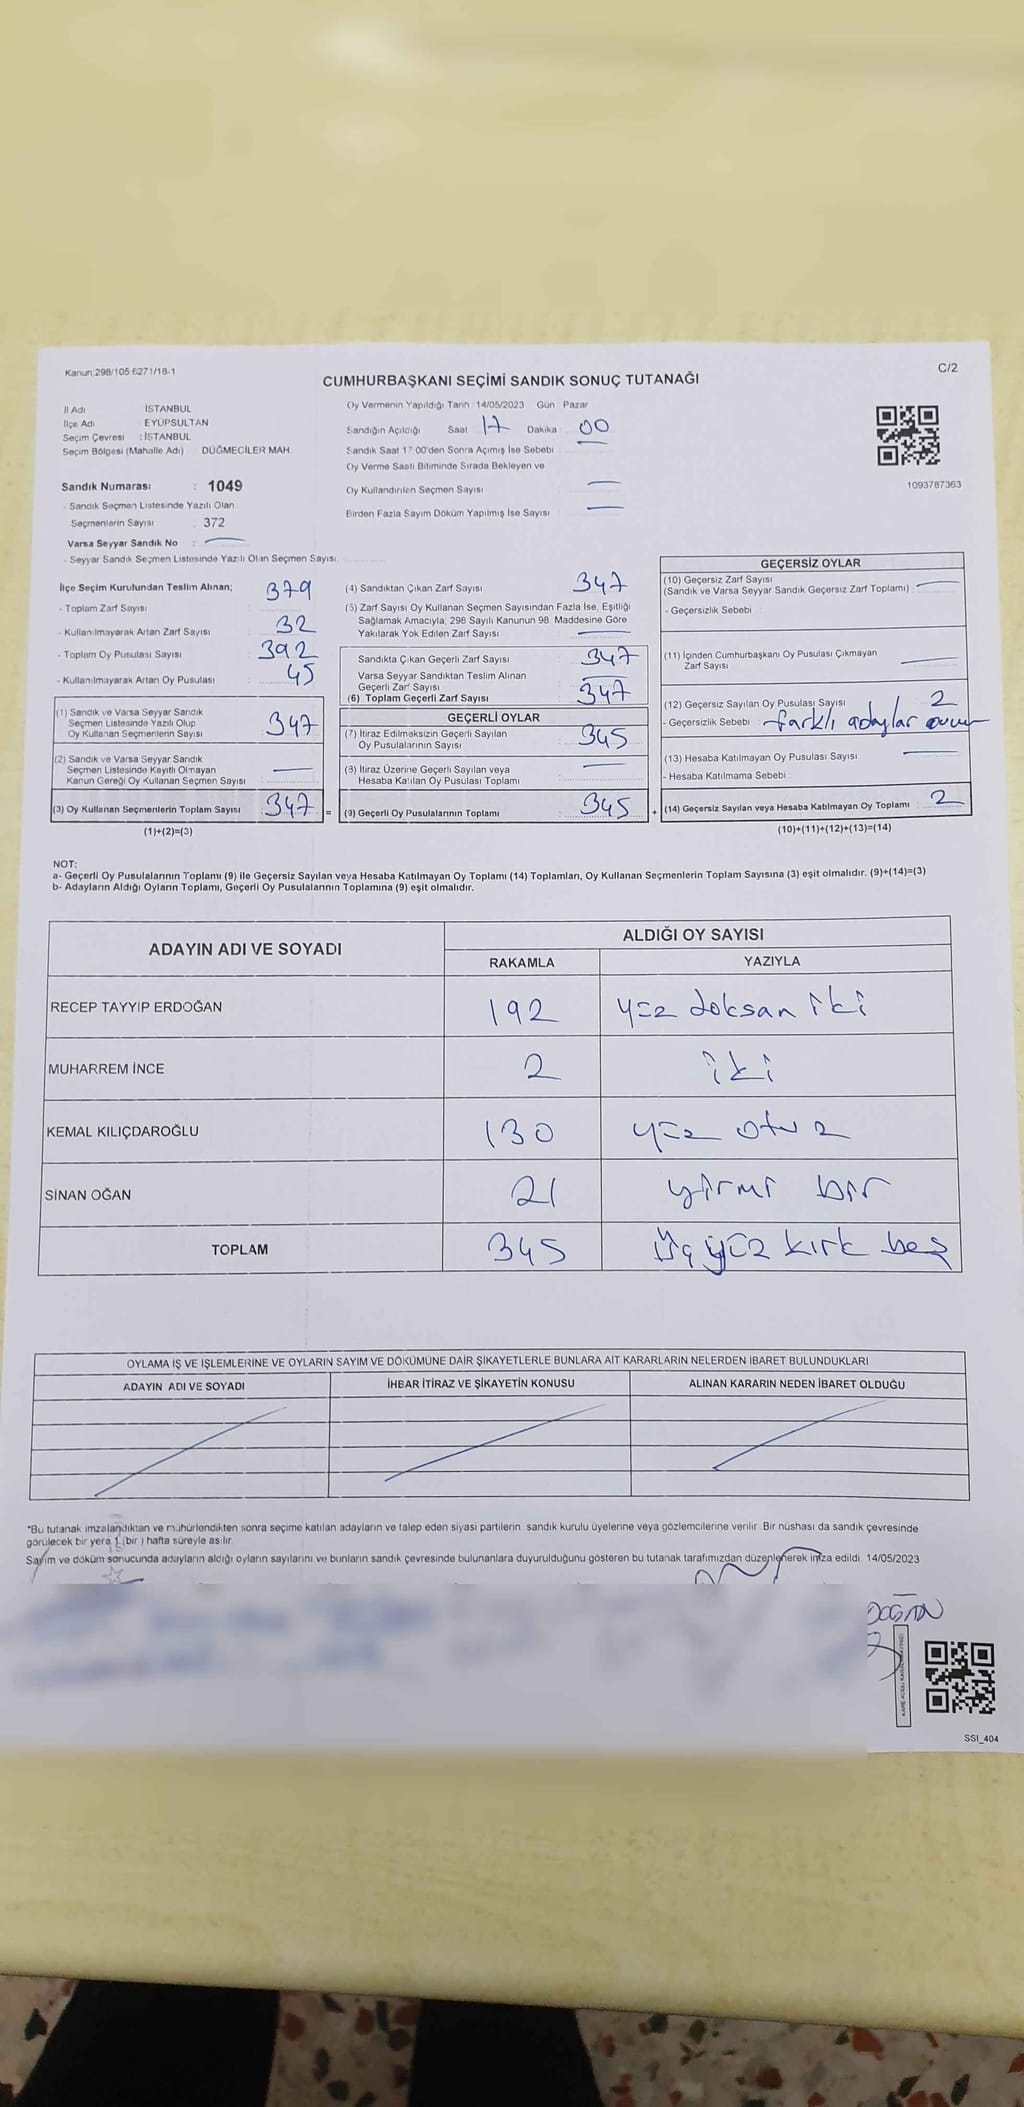 Kanun:298/105 6271/18-1
C/2
CUMHURBAŞKANI SEÇİMİ SANDIK SONUÇ TUTANAĞI
İl Adı İSTANBUL
İlçe Adı EYÜPSULTAN
Seçim Çevresi : İSTANBUL
Seçim Bölgesi (Mahalle Adı) DÜĞMECİLER MAH
Sandık Numarası : 1049
- Sandık Seçmen Listesinde Yazılı Olan
Seçmenlerin Sayısı 372
Varsa Seyyar Sandık No
- Seyyar Sandık Seçmen Listesinde Yazılı Olan Seçmen Sayısı
Oy Vermenin Yapıldığı Tarih : 14/05/2023 Gün : Pazar
Sandığın Açıldığı Saat 17 Dakika 00
Sandık Saat 17:00'den Sonra Açılmış İse Sebebi
Oy Verme Saati Bitiminde Sırada Bekleyen ve
Oy Kullandırılan Seçmen Sayısı
Birden Fazla Sayım Döküm Yapılmış İse Sayısı
1093787363
İlçe Seçim Kurulundan Teslim Alınan;
- Toplam Zarf Sayısı 379
- Kullanılmayarak Artan Zarf Sayısı 32
- Toplam Oy Pusulası Sayısı 392
- Kullanılmayarak Artan Oy Pusulası 45
(1) Sandık ve Varsa Seyyar Sandık
Seçmen Listesinde Yazılı Olup
Oy Kullanan Seçmenlerin Sayısı 347
(2) Sandık ve Varsa Seyyar Sandık
Seçmen Listesinde Kayıtlı Olmayan
Kanun Gereği Oy Kullanan Seçmen Sayısı
(3) Oy Kullanan Seçmenlerin Toplam Sayısı 347 =
(1)+(2)=(3)
(4) Sandıktan Çıkan Zarf Sayısı 347
(5) Zarf Sayısı Oy Kullanan Seçmen Sayısından Fazla İse, Eşitliği
Sağlamak Amacıyla, 298 Sayılı Kanunun 98. Maddesine Göre
Yakılarak Yok Edilen Zarf Sayısı
Sandıkta Çıkan Geçerli Zarf Sayısı 347
Varsa Seyyar Sandıktan Teslim Alınan
Geçerli Zarf Sayısı
(6) Toplam Geçerli Zarf Sayısı 347
GEÇERLİ OYLAR
(7) İtiraz Edilmeksizin Geçerli Sayılan
Oy Pusulalarının Sayısı 345
(8) İtiraz Üzerine Geçerli Sayılan veya
Hesaba Katılan Oy Pusulası Toplamı
(9) Geçerli Oy Pusulalarının Toplamı 345 +
GEÇERSİZ OYLAR
(10) Geçersiz Zarf Sayısı
(Sandık ve Varsa Seyyar Sandık Geçersiz Zarf Toplamı)
- Geçersizlik Sebebi
(11) İçinden Cumhurbaşkanı Oy Pusulası Çıkmayan
Zarf Sayısı
(12) Geçersiz Sayılan Oy Pusulası Sayısı 2
- Geçersizlik Sebebi farklı adaylar
(13) Hesaba Katılmayan Oy Pusulası Sayısı
- Hesaba Katılmama Sebebi
(14) Geçersiz Sayılan veya Hesaba Katılmayan Oy Toplamı 2
(10)+(11)+(12)+(13)=(14)
NOT:
a- Geçerli Oy Pusulalarının Toplamı (9) ile Geçersiz Sayılan veya Hesaba Katılmayan Oy Toplamı (14) Toplamları, Oy Kullanan Seçmenlerin Toplam Sayısına (3) eşit olmalıdır. (9)+(14)=(3)
b- Adayların Aldığı Oyların Toplamı, Geçerli Oy Pusulalarının Toplamına (9) eşit olmalıdır.
ADAYIN ADI VE SOYADI
ALDIĞI OY SAYISI
RAKAMLA YAZIYLA
RECEP TAYYİP ERDOĞAN 192 yüz doksan iki
MUHARREM İNCE 2 iki
KEMAL KILIÇDAROĞLU 130 yüz otuz
SİNAN OĞAN 21 yirmi bir
TOPLAM 345 Üç yüz kırk beş
OYLAMA İŞ VE İŞLEMLERİNE VE OYLARIN SAYIM VE DÖKÜMÜNE DAİR ŞİKAYETLERLE BUNLARA AİT KARARLARIN NELERDEN İBARET BULUNDUKLARI
ADAYIN ADI VE SOYADI İHBAR İTİRAZ VE ŞİKAYETİN KONUSU ALINAN KARARIN NEDEN İBARET OLDUĞU
*Bu tutanak imzalandıktan ve mühürlendikten sonra seçime katılan adayların ve talep eden siyasi partilerin sandık kurulu üyelerine veya gözlemcilerine verilir. Bir nüshası da sandık çevresinde
görülecek bir yere 1 (bir ) hafta süreyle asılır.
Sayım ve döküm sonucunda adayların aldığı oyların sayılarını ve bunların sandık çevresinde bulunanlara duyurulduğunu gösteren bu tutanak tarafımızdan düzenlenerek imza edildi. 14/05/2023
DOĞAN
SSI_404